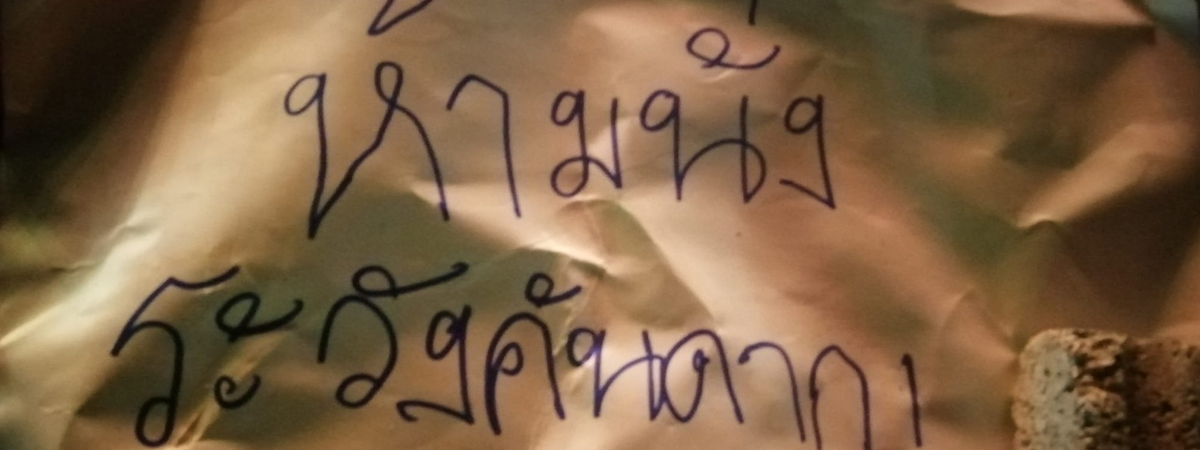 ห้ามนั่ง
ระวังคันดาก!